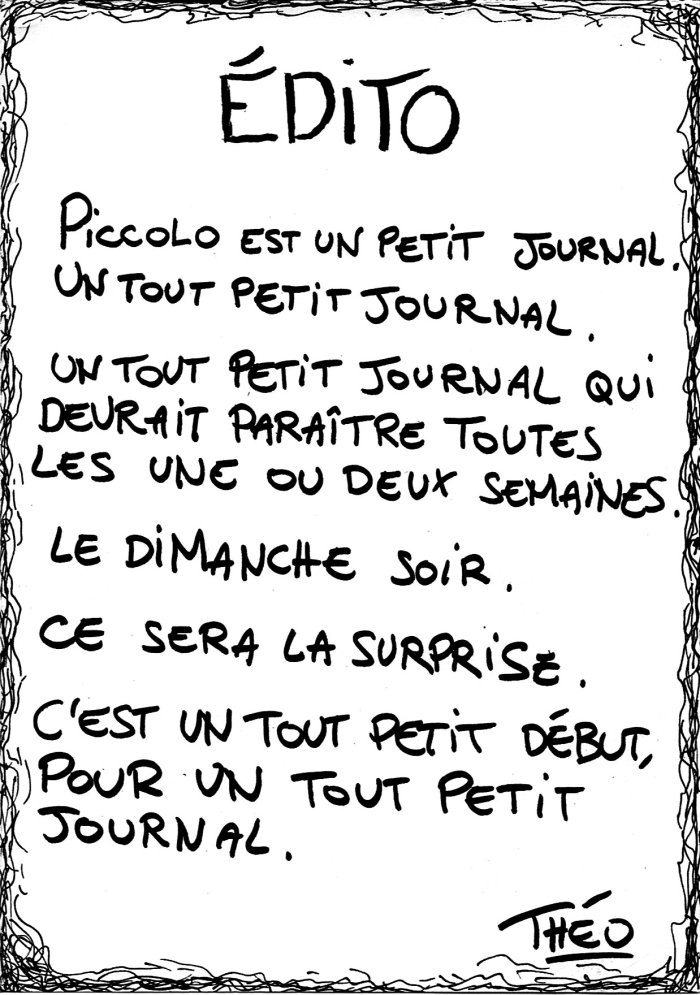 ÉDITO
PICCOLO EST UN PETIT JOURNAL.
UN TOUT PETIT JOURNAL.
UN TOUT PETIT JOURNAL QUI
DEVRAIT PARAÎTRE TOUTES
LES UNE OU DEUX SEMAINES.
LE DIMANCHE SOIR.
CE SERA LA SURPRISE.
C'EST UN TOUT PETIT DÉBUT,
POUR UN TOUT PETIT
JOURNAL.
THÉO